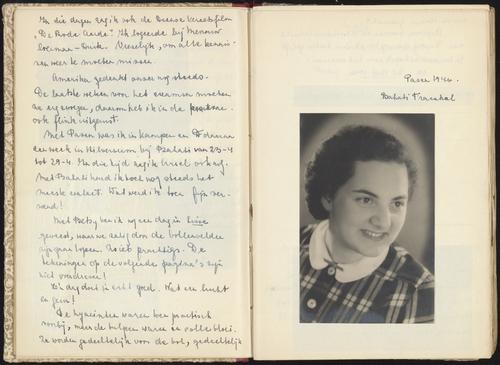 In die dagen zag ik ook de Deense verzetsfilm
De Rode Aarde". Ik logeerde bij Mevrouw
Vreselijk, om al te kennis-
sen weer te moeten missen.
Amerika gedenkt onze nog steeds.
De laatste weken voor het examen moeten
we erg zwoegen, daarom heb ik in de
ook flink uitgerust.
Met Pasen was ik in Kampen en daarna
een week in Hilversum bij Babati van 23-4
tot 29-4. In die tijd zag ik Ursel ook nog.
Met Babati houd ik toch nog steeds het
meeste contact. Wat werd ik toen fijn ver-
wend!
Met Betsy ben ik nog een dag in Lisse
geweest, waar we als door de bollenvelden
zijn gaan lopen. Zoiets prachtigs. De
tekeningen op de volgende pagina's zijn
niet overdreven!
Zo'n dag doet je echt goed. Wat een lucht
en geur!
De hyacinten waren ben practisch
voorbij, maar de tulpen waren in volle bloei.
Ze worden gedeeltelijk voor de bol, gedeeltelijk
Pasen 1946.
Babati